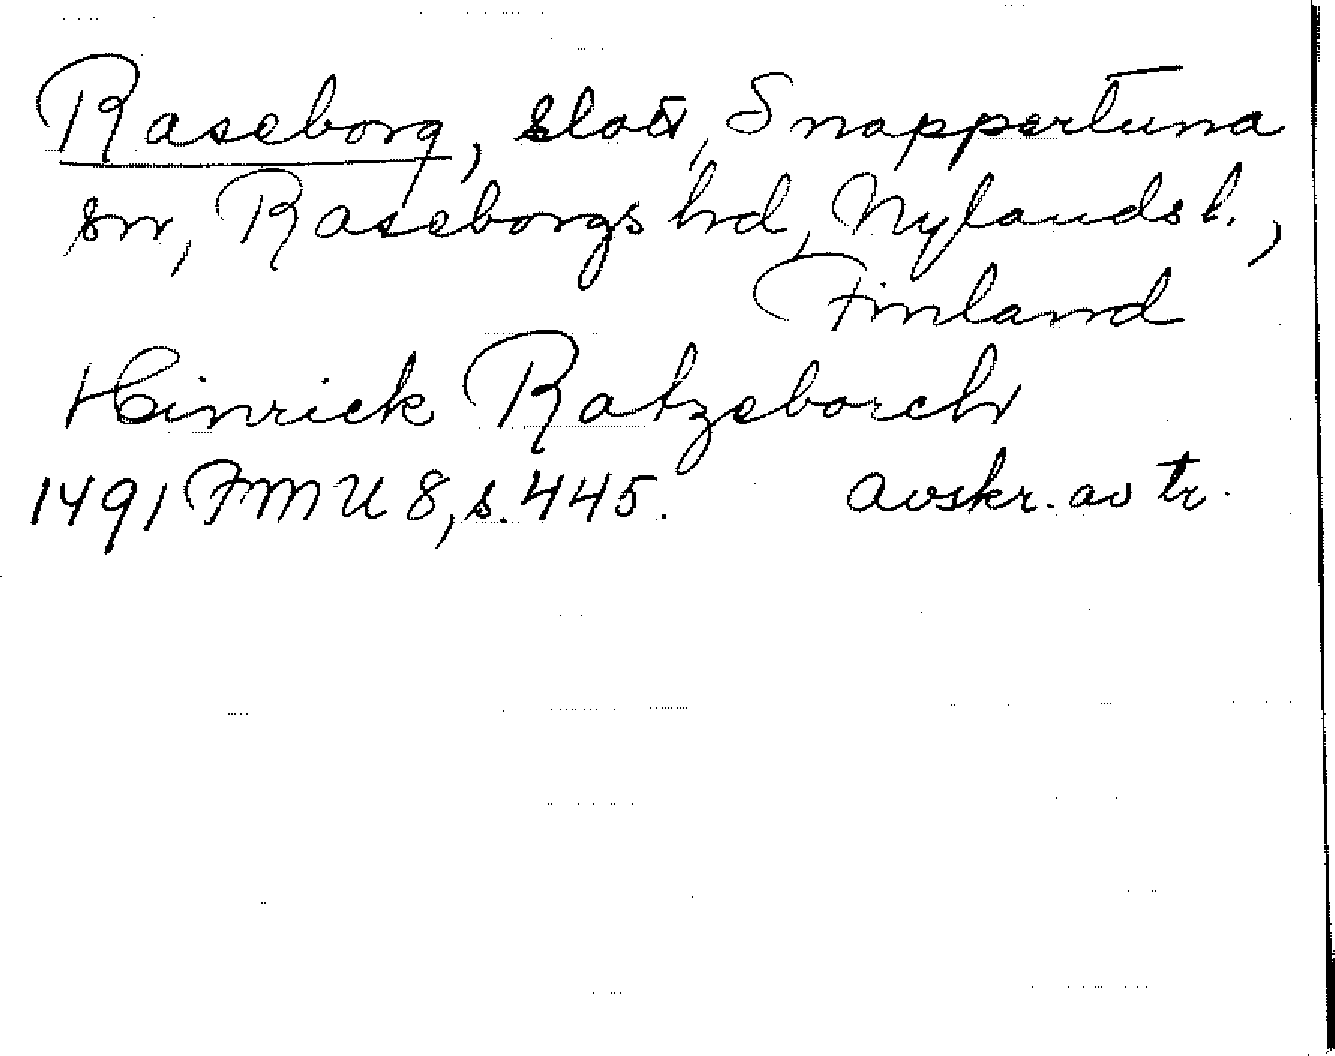 Raseborg, slott, Snappertuna
sn, Raseborgs hrd, Nylands l.,
Finland
Hinrick Ratzeborch
1491 FMU 8, s. 445. avskr. av tr.